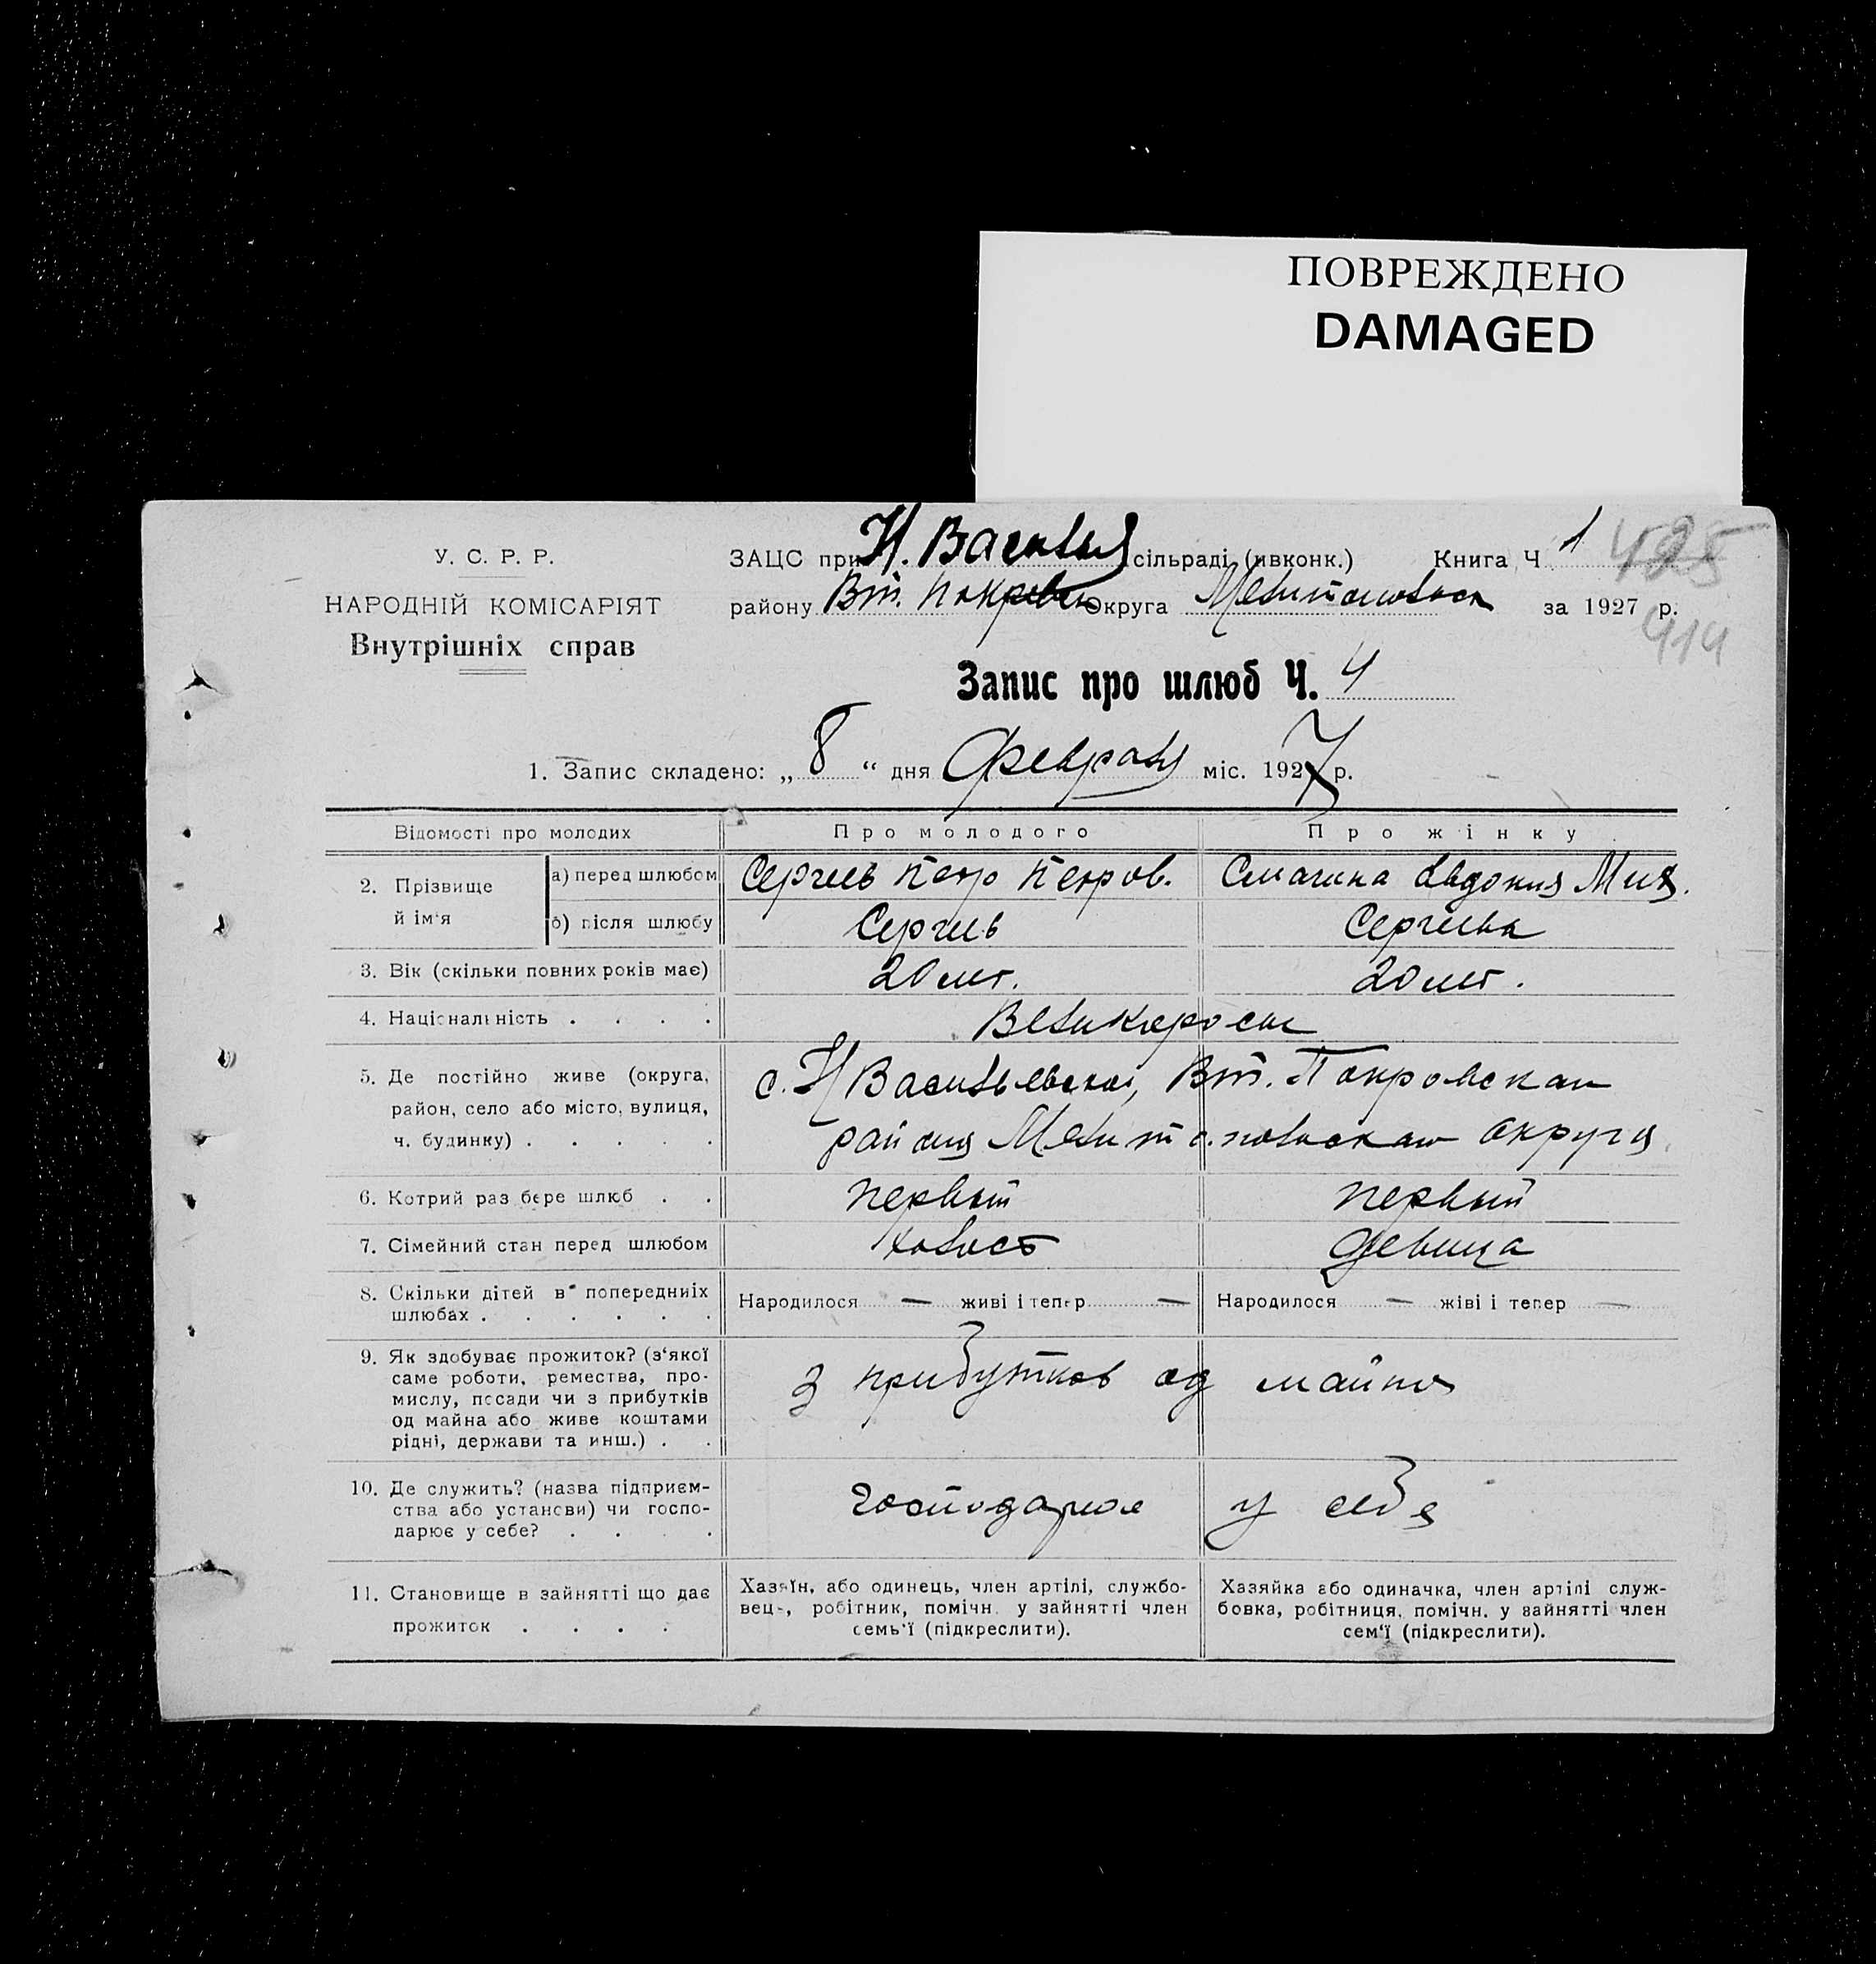 ПОВРЕЖДЕНО
DAMAGED
У. С. Р. Р.
НАРОДНІЙ КОМІСАРІЯТ
Внутрішніх справ
ЗАЦС при Н. Васильев сільраді (ивконк.) Книга Ч 1
району Вт. Покровск Округа Мелитопольск за 1927 р.
414
Запис про шлюб Ч. 4
1. Запис складено: „ 8 “ дня Февраля міс. 1927 р.
Відомості про молодих Про молодого Про жінку
2. Прізвище й ім'я а) перед шлюбом Сергеев Петр Петров. Смагина Евдокия Мих.
б) після шлюбу Сергеев Сергеева
3. Вік (скільки повних років має) 20 лет. 20 лет.
4. Національність . . . . Великороссы
5. Де постійно живе (округа,
район, село або місто, вулиця,
ч. будинку) . . . . .
с. Н Васильевской, Вт. Покровскаго
района Мелитопольскаго округа
6. Котрий раз бере шлюб . . первый первый
7. Сімейний стан перед шлюбом холост девица
8. Скільки дітей в попередниіх
шлюбах . . . . . .
Народилося — живі і тепер — Народилося — жіві і тепер —
9. Як здобуває прожиток? (з'якої
саме роботи, ремества, про-
мислу, посади чи з прибутків
од майна або живе коштами
рідні, держави та инш.) . .
з прибутков од майна
10. Де служить? (назва підприєм-
ства або установи) чи госпо-
дарює у себе? . . . .
господарює у себя
11. Становище в зайнятті що дає
прожиток . . . .
Хазяїн, або одинець, член артілі, службо-
вець, робітник, помічн. у зайнятті член
семь'ї (підкреслити).
Хазяйка або одиначка, член артілі служ-
бовка, робітниця, помічн. у зайнятті член
сем'ї (підкреслити).